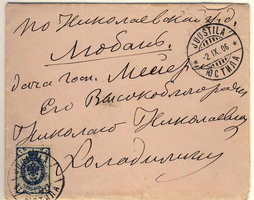 по Николаевской ж. д.
Любань.
дача госп. Мейер
Его Высокоблагородію
Николаю Николаевичу
Холодилину
JUUSTILA
2.IX.06
ЮСТИЛА